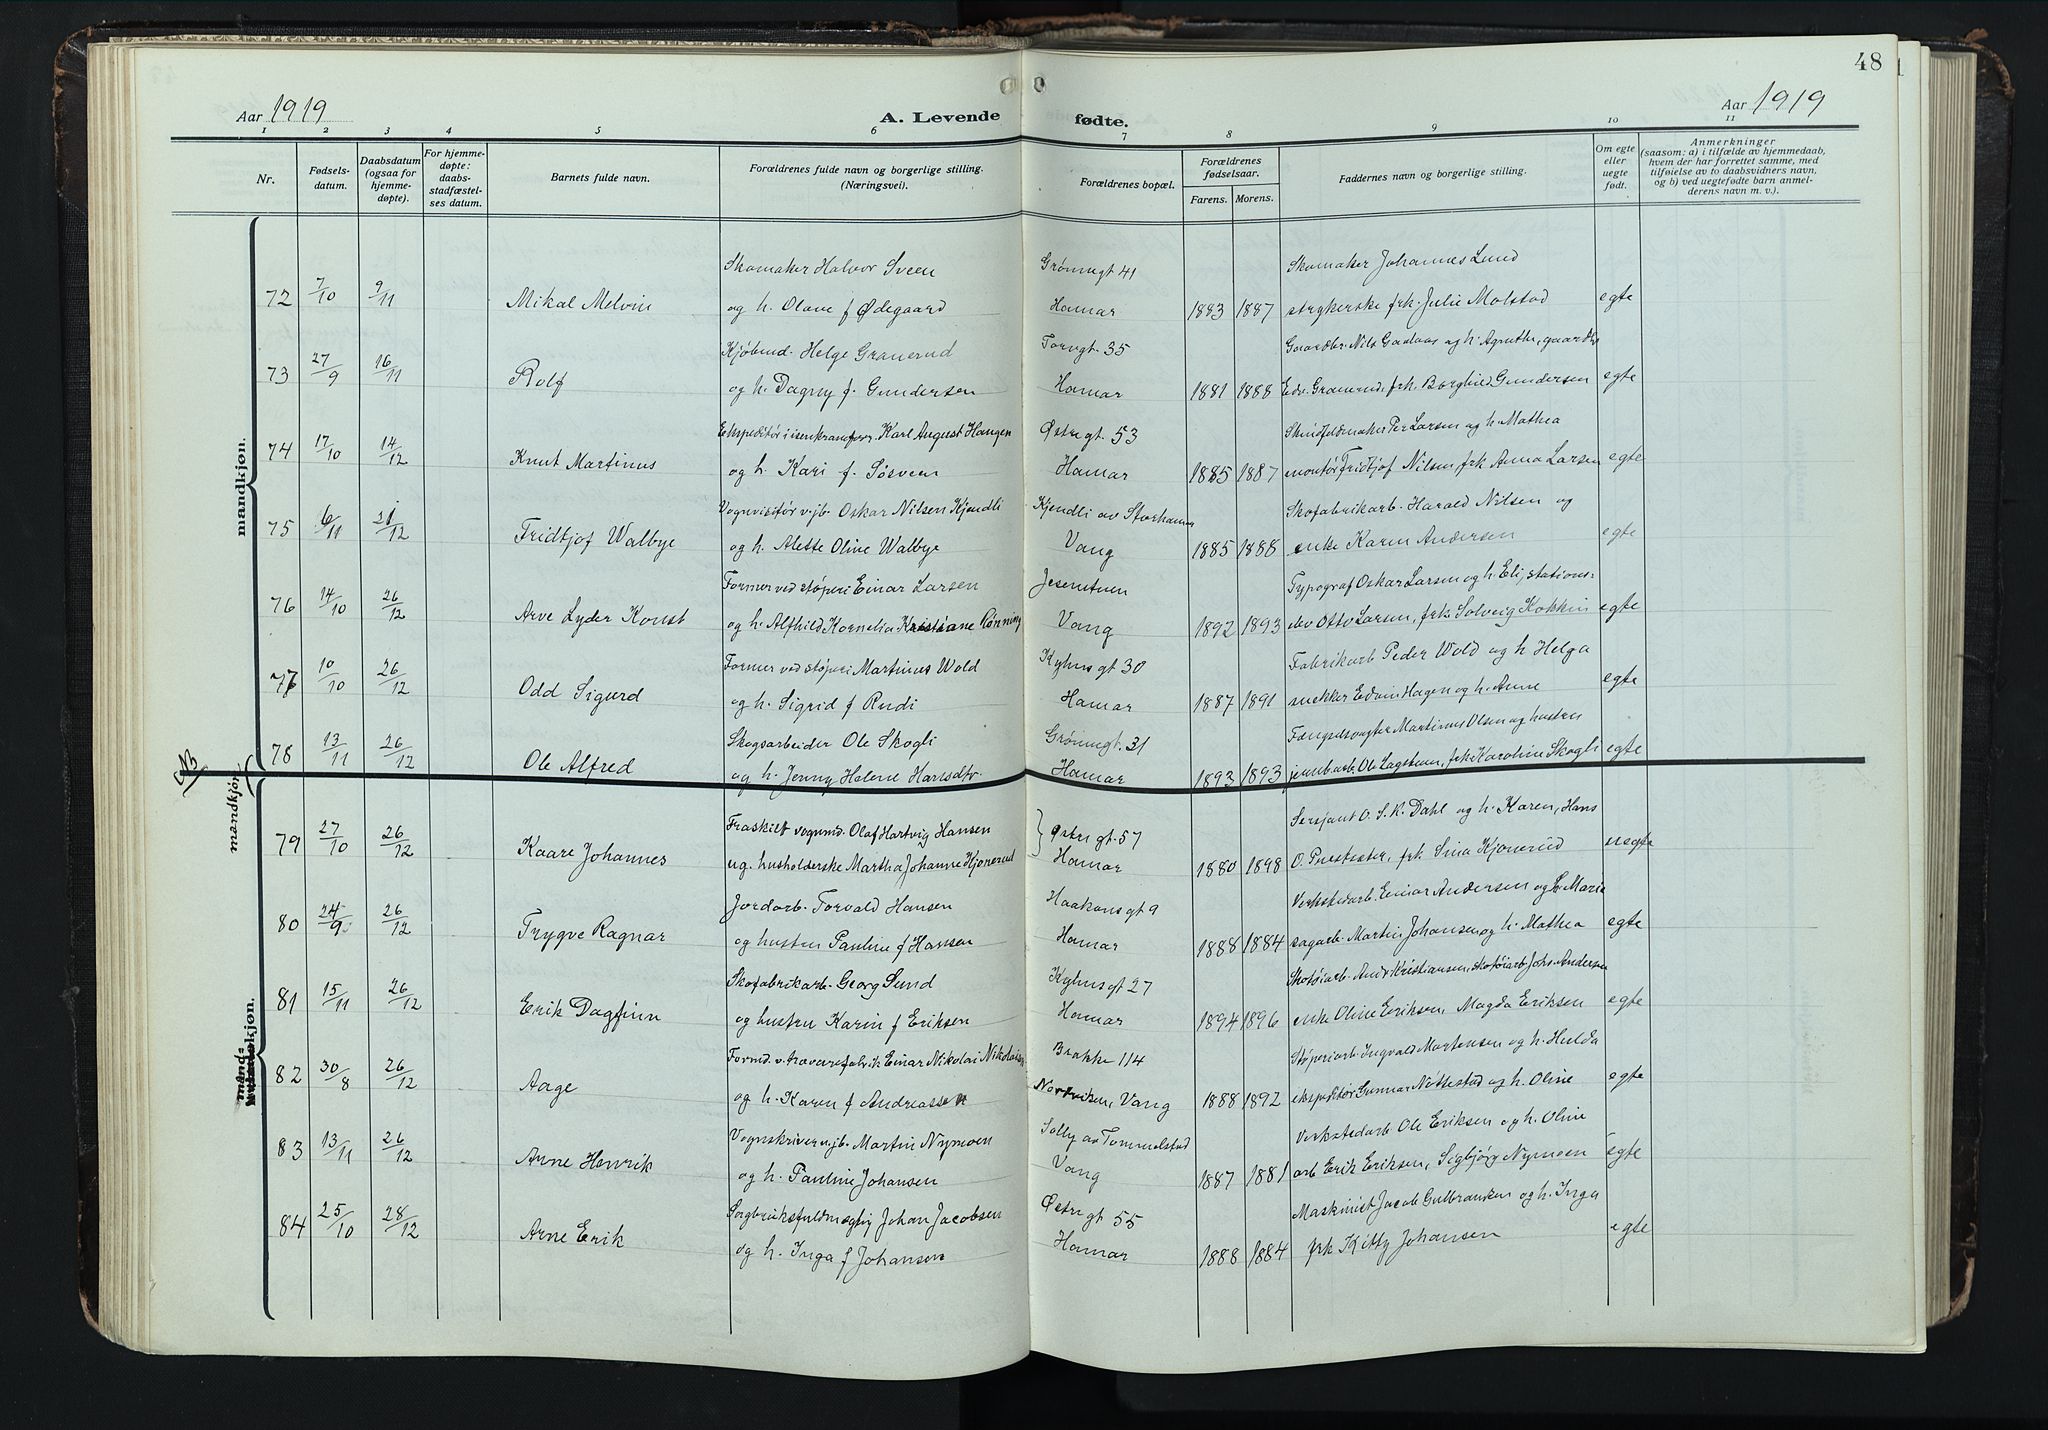 48
Aar 1919 A. Levende fødte. Aar 1919
1 2 3 4 5 6 7 8 9 10 11
Nr. Fødsels-datum. Daabsdatum (ogsaa for hjemme-døpte). For hjemme-døpte: daabs-stadfæstel-ses datum. Barnets fulde navn. Forældrenes fulde navn og borgerlige stilling. (Næringsvei). Forældrenes bopæl. Forældrenes fødselsaar. Farens. Morens. Faddernes navn og borgerlige stilling. Om egte eller uegte født. Anmerkninger (saasom: a) i tilfælde av hjemmedaab, hvem der har forrettet samme, med tilføielse av to daabsvidners navn, og b) ved uegtefødte barn anmel-derens navn m. v.).
mandkjøn.
Skomaker Halvor Sveen Grønnegt 41 Skomaker Johannes Lund
72 7/10 9/11 Mikal Melvin og h. Olave f Ødegaard Hamar 1883 1887 strykerske frk. Julie Molstad egte
Kjøbmd. Helge Granerud Torvgt. 35 Gaardbr. Nils Gaalaas og h. Agnethe, gaardbr
73 27/9 16/11 Rolf og h. Dagny f. Gundersen Hamar 1881 1888 Edv. Granerud, frk. Borghild Gundersen egte
Ekspeditør i isenkramforr. Karl August Haugen Østregt 53 Skindfeldmaker Per Larsen og h. Mathea
74 17/10 14/12 Knut Martinus og h. Kari f. Søsveen Hamar 1885 1887 montør Fridtjof Nilsen, frk Anna Larsen egte
Vognvisitør v. jb. Oskar Nilsen Kjendli Kjendli av Storhamar Skofabrikarb. Harald Nilsen og
75 6/11 21/12 Fridtjof Walbye og h. Alette Oline Walbye Vang 1885 1888 enke Karen Andersen egte
Former ved støperi Einar Larsen Jesnetuen Typograf Oskar Larsen og h. Eli, stations=
76 14/10 26/12 Arve Lyder Konst og h. Alfhild Kornelia Kristiane Rønning Vang 1892 1893 elev Otto Larsen, frk. Solveig Kokkin egte
Former ved støperi Martinus Wold Kyhnsgt 30 Fabrikarb Peder Wold og h Helga
77 10/10 26/12 Odd Sigurd og h. Sigrid f Rudi Hamar 1887 1891 snekker Edvin Hagen og h. Anne egte
Skogsarbeider Ole Skogli Grønnegt. 31 Fængselsvagter Martinus Olsen og hustru
78 13/11 26/12 Ole Alfred og h. Jenny Helene Hansdtr. Hamar 1893 1893 jernbarb. Ole Lagstuen, frk Karoline Skogli egte
NB
mandkjøn
Fraskilt vognmd. Olaf Hartvig Hansen Østregt. 57 Sersjant O. S. K. Dahl og h. Karen, Hans
79 27/10 26/12 Kaare Johannes ug. husholderske Martha Johanne Kjonerud Hamar 1880 1898 O. Prestseter, frk Sina Kjonerud uegte
Jordarb. Torvald Hansen Haakonsgt 9 Verkstedarb. Einar Andersen og h. Marie
80 24/9 26/12 Trygve Ragnar og hustru Pauline f Hansen Hamar 1888 1884 sagarb. Martin Johansen og h. Mathea egte
Skofabrikarb. Georg Sund Kyhnsgt 27 Skotøiarb. Andr Kristiansen, skotøiarb Johs. Andersen
81 15/11 26/12 Erik Dagfinn og hustru Karin f Eriksen Hamar 1894 1896 enke Oline Eriksen, Magda Eriksen egte
mand=kjøn.
Formd. v. travarefabrik Einar Nikolai Nikolaisen Brakke 114 Støperiarb. Ingvald Martensen og h. Hulda
82 30/8 26/12 Aage og h. Karen f Andreassen Norviken, Vang 1888 1892 ekspeditør Gunnar Nøttestad og h. Oline egte
Vognskriver v. jb. Martin Nymoen Solly av Tommelstad Verkstedarb Ole Eriksen og h. Oline
83 13/11 26/12 Arne Henrik og h. Pauline Johansen Vang 1887 1881 arb Erik Eriksen, Sigbjørg Nymoen egte
Sagbruksfuldmægtig Johan Jacobsen Østregt 55 Maskinist Jacob Gulbrandsen og h. Inga
84 25/10 28/12 Arne Erik og h. Inga f Johansen Hamar 1888 1884 frk Kitty Johansen egte